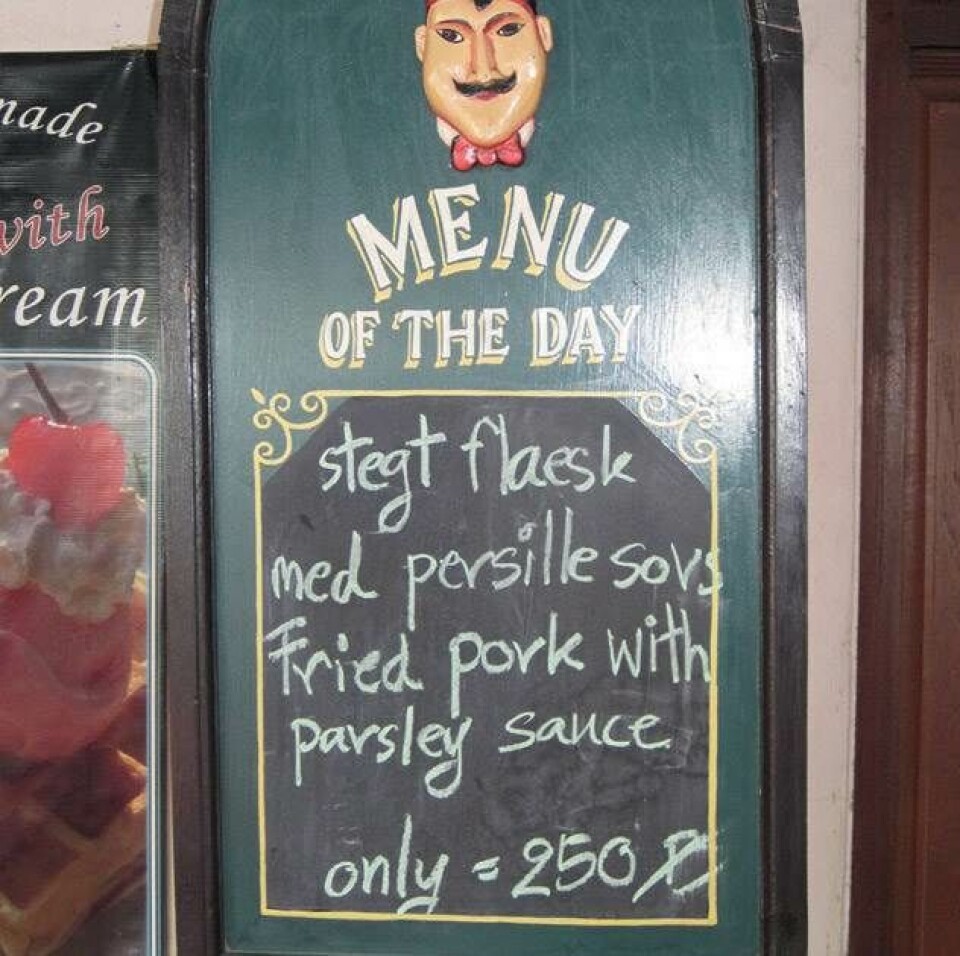 made
with
ream
MENU
OF THE DAY
stegt flaesk
med persille sovs
Fried pork with
parsley sauce
only = 250